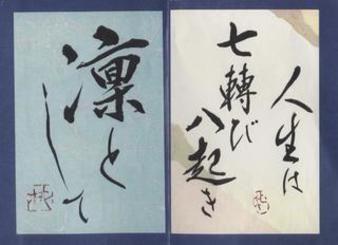 人生は
七轉び
八起き
凛と
して